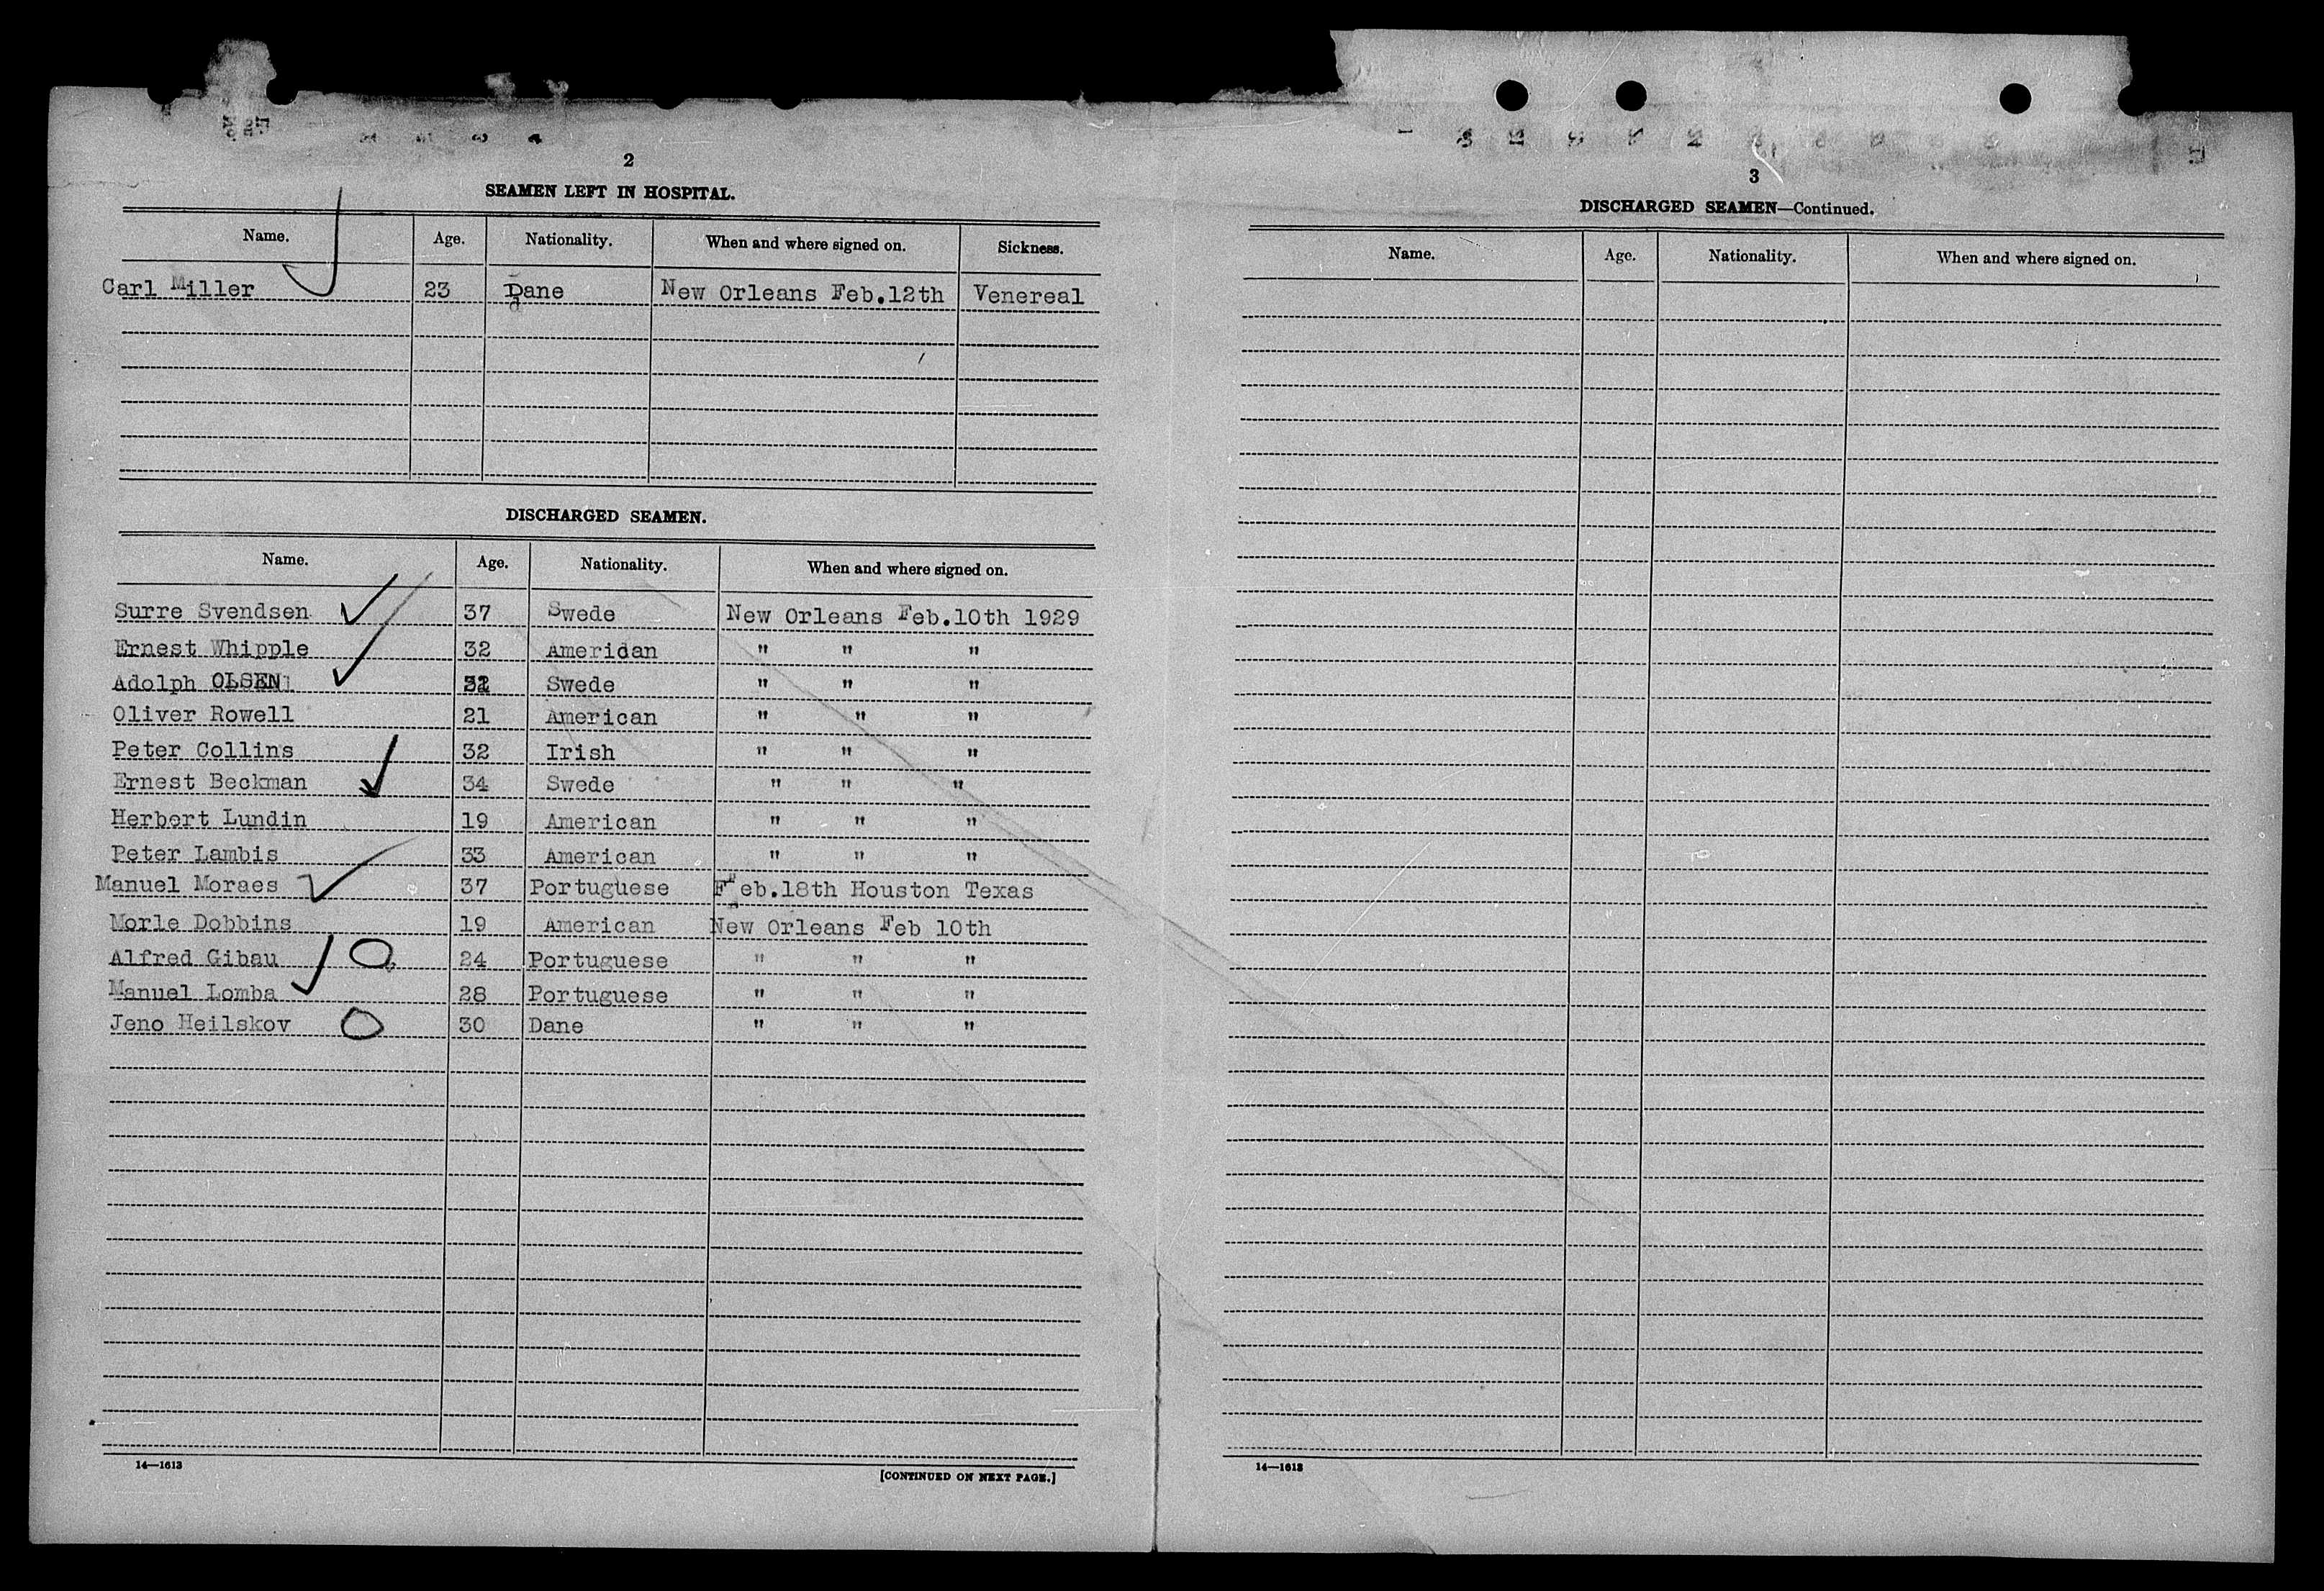 2
SEAMEN LEFT IN HOSPITAL.
Name. Age. Nationality. When and where signed on. Sickness.
Carl Miller 23 Dane New Orleans Feb.12th Venereal
DISCHARGED SEAMEN.
Name. Age. Nationality. When and where signed on.
Surre Svendsen 37 Swede New Orleans Feb.10th 1929
Ernest Whipple 32 Ameridan " " "
Adolph OLSEN Swede " " "
Oliver Rowell 21 American " " "
Peter Collins 32 Irish " " "
Ernest Beckman 34 Swede " " "
Herbert Lundin 19 American " " "
Peter Lambis 33 American " " "
Manuel Moraes 37 Portuguese Feb.18th Houston Texas
Morle Dobbins 19 American New Orleans Feb 10th
Alfred Gibau 24 Portuguese " " "
Manuel Lomba 28 Portuguese " " "
Jeno Heilskov 30 Dane " " "
14—1613
[CONTINUED ON NEXT PAGE.]
3
DISCHARGED SEAMEN—Continued.
Name. Age. Nationality. When and where signed on.
14—1613